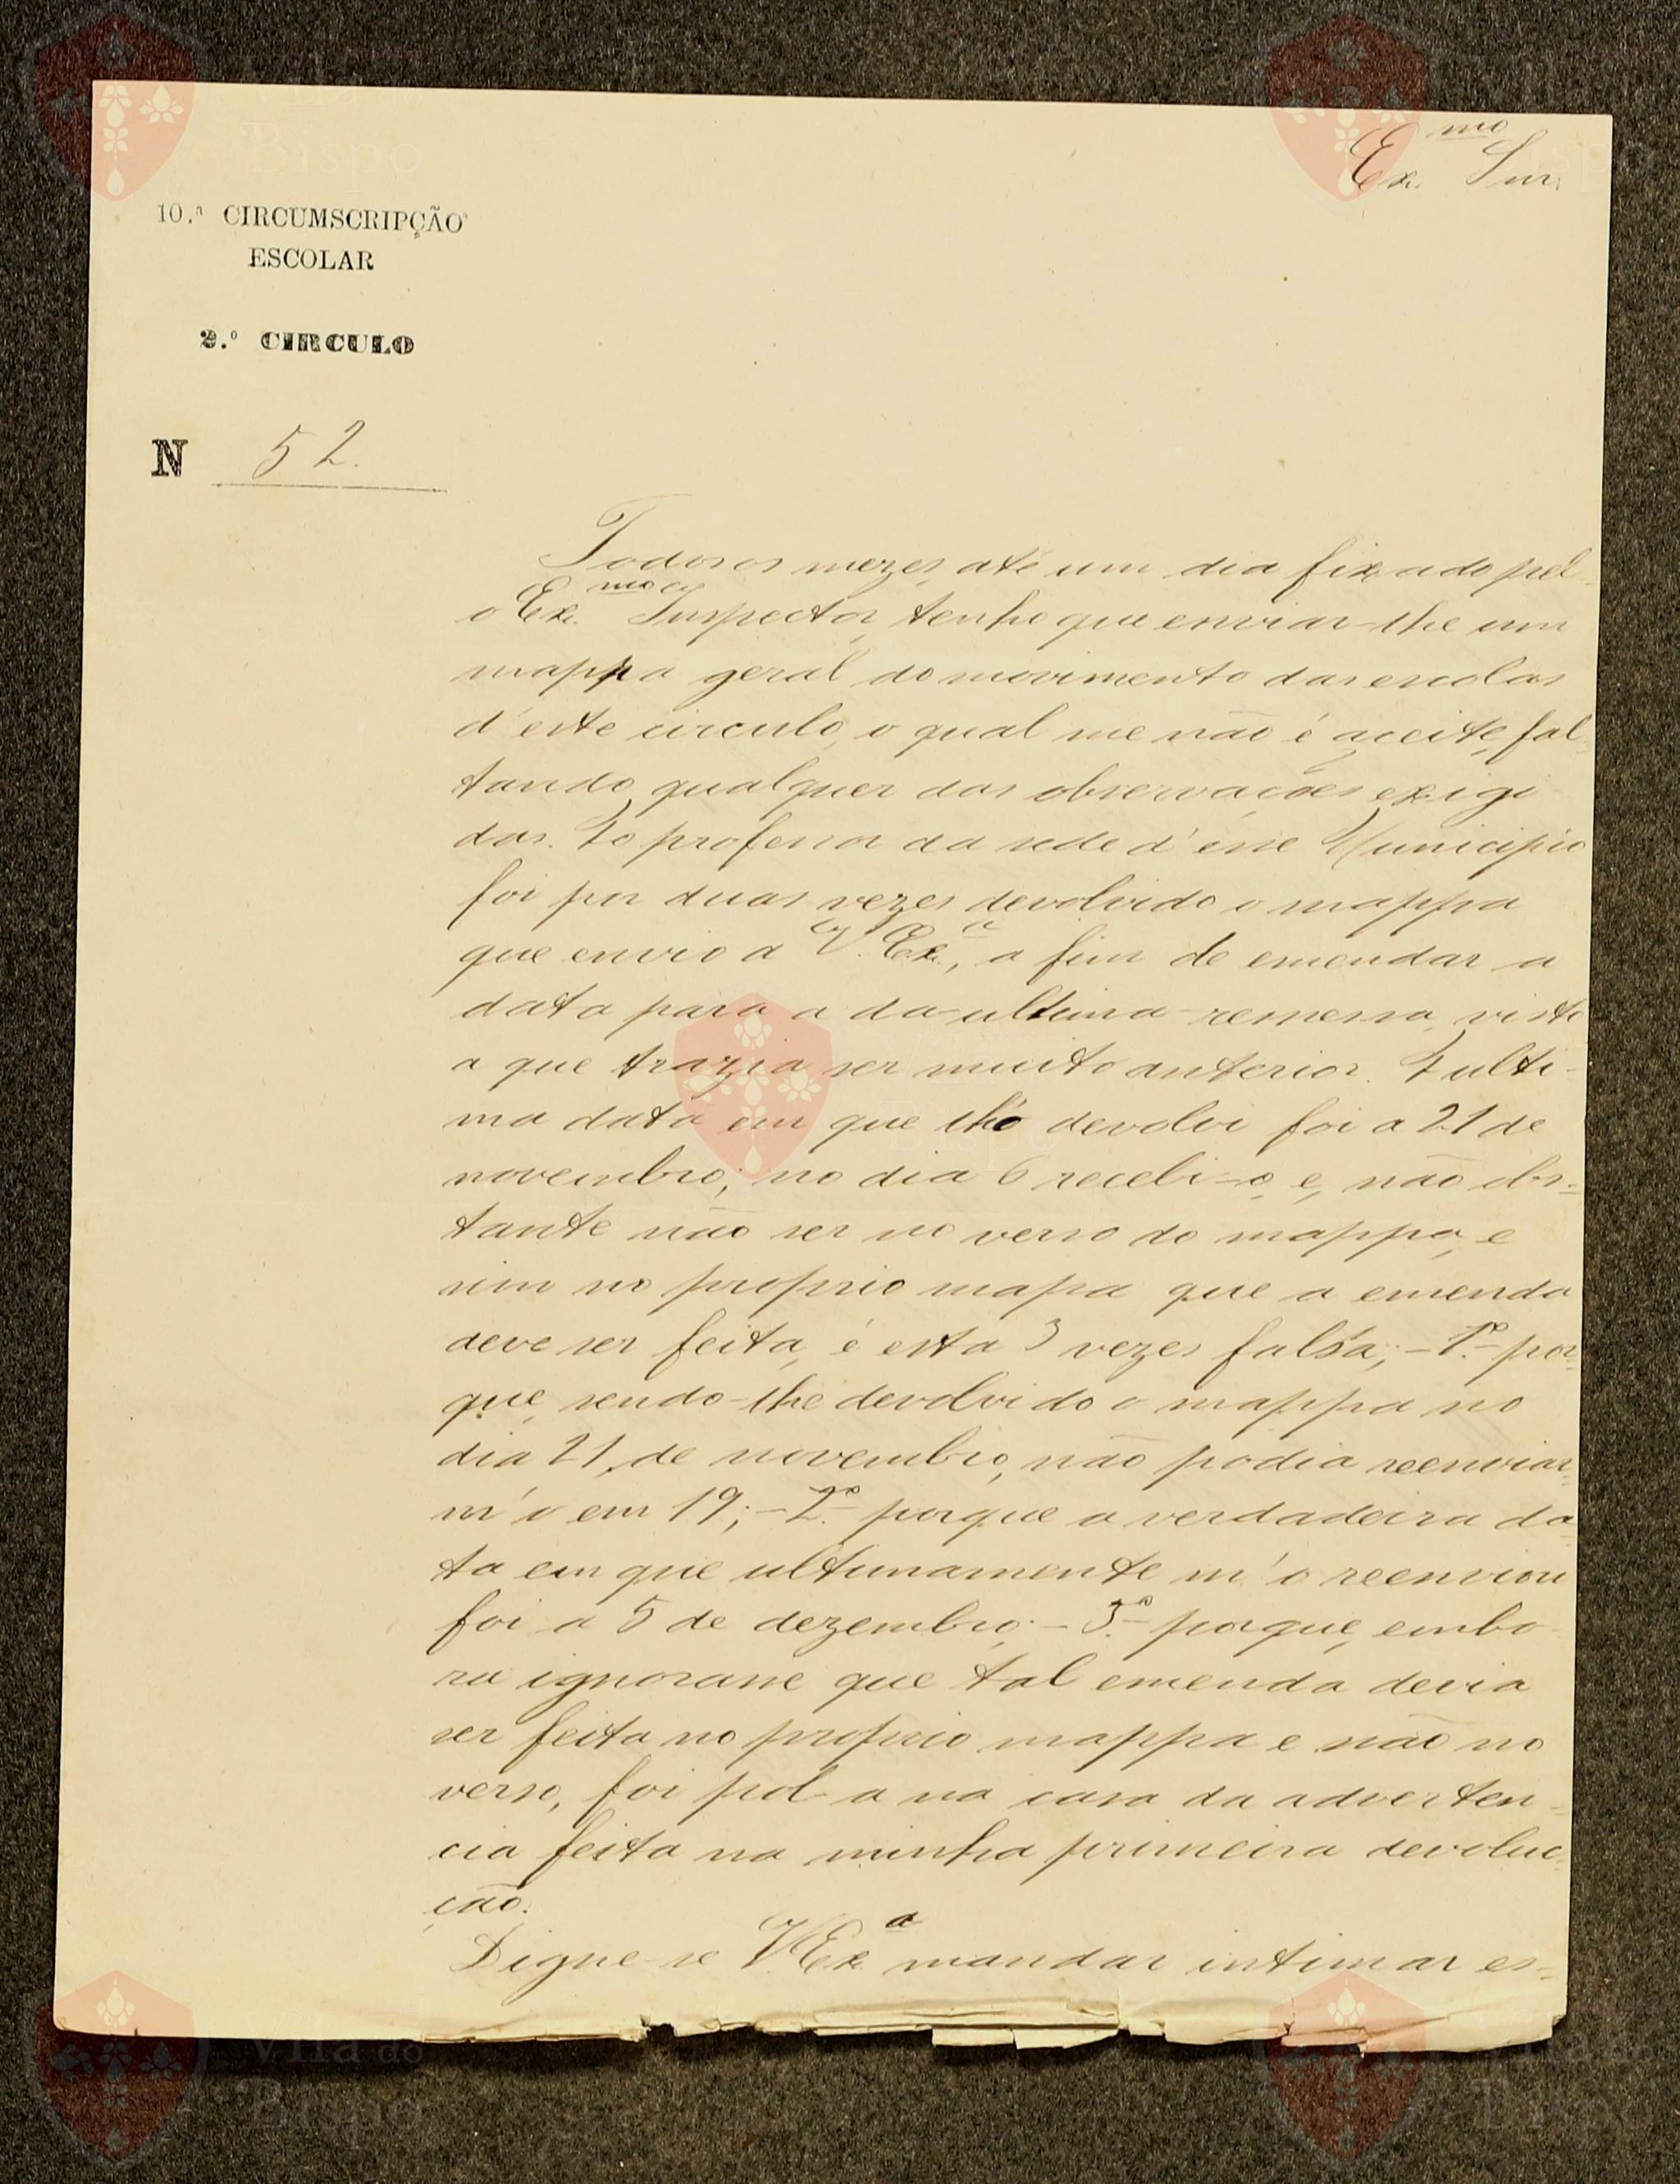 Ex.mo Snr.
10.ª CIRCUMSCRIPÇÃO
ESCOLAR
2.º CIRCULO
N 52.
Todos os mezes, até um dia fixado pel-
o Ex.mo Inspector, tenho que enviar-lhe um
mappa geral do movimento das escolas
d'este circulo, o qual me não é acceite, fal-
tando qualquer das observações exigi-
das. Ao professor da sede d'esse Municipio
foi por duas vezes devolvido o mappa
que envio a V. Ex.ª, a fim de emendar a
data para a da ultima remessa, visto
a que trazia ser muito anterior. A ulti-
ma data em que lh'o devolvi foi a 21 de
novembro; no dia 6 recebi-o, e, não obs-
tante não ser no verso do mappa, e
sim no proprio mapa que a emenda
deve ser feita, é esta 3 vezes falsa; - 1.º - por-
que, sendo-lhe devolvido o mappa no
dia 21, de novembro, não podia reenviar-
m'o em 19; - 2.º porque a verdadeira da-
ta em que ultimamente m'o reenviou
foi a 5 de dezembro; - 3.º - porque, embo-
ra ignorasse que tal emenda devia
ser feita no proprio mappa e não no
verso, foi pol-a na casa da adverten-
cia feita na minha primeira devoluc-
ção.
Digne-se V. Ex.ª mandar intimar es-
Vila do
Bispo